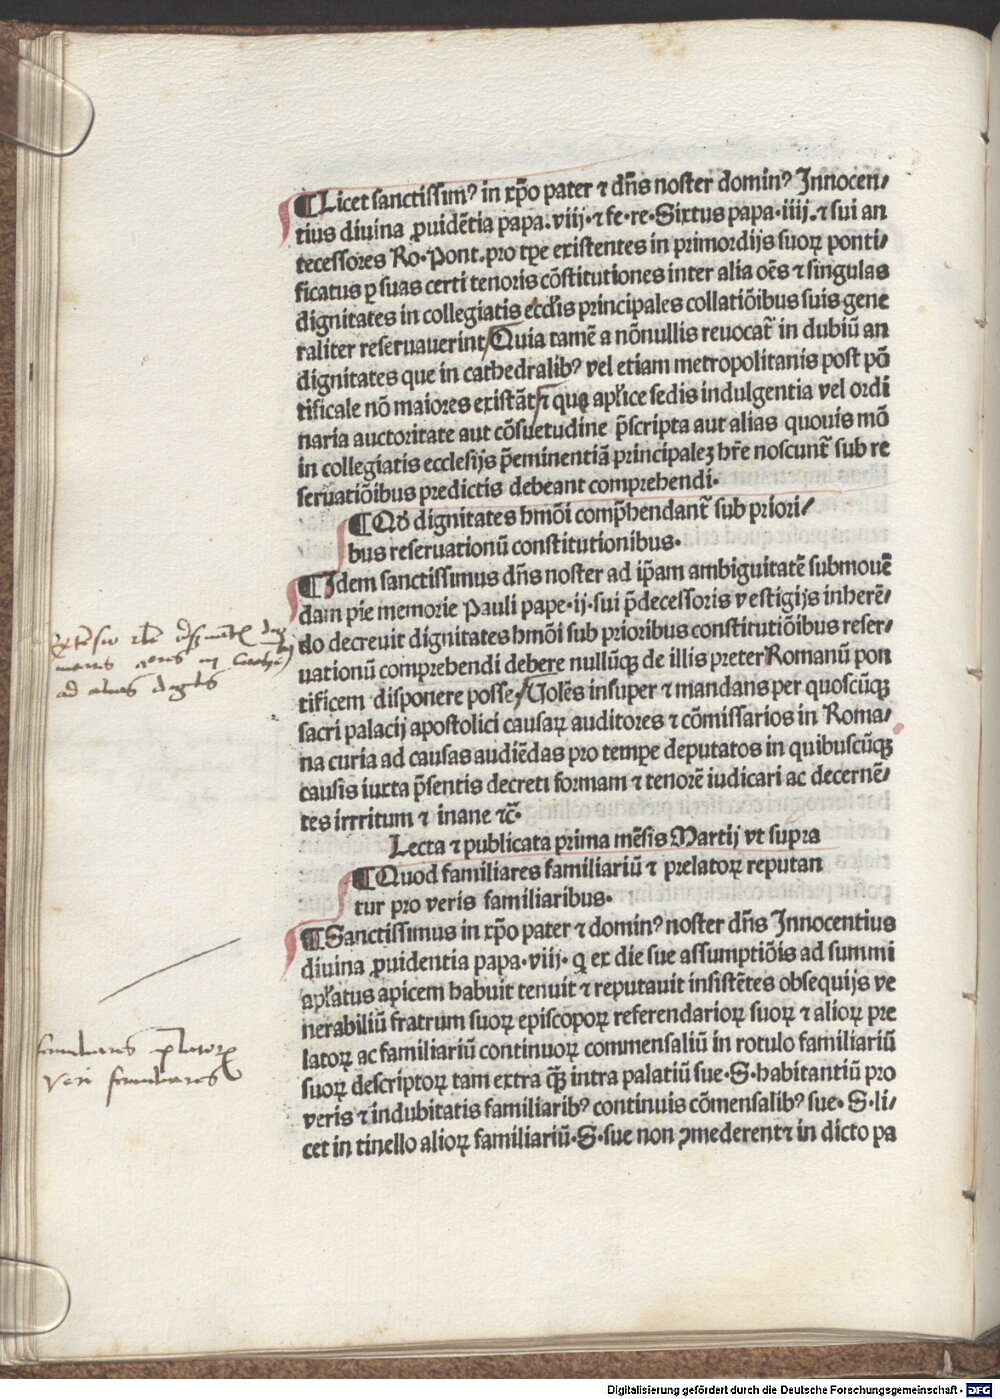 ¶Licet sanctissimꝰ in xp̄o pater ⁊ dn̄s noster dominꝰ Innocen⸗
tius diuina ꝓuidētia papa.viij.⁊ fe.re.Sixtus papa.iiij.⁊ sui an
tecessores Ro.Pont.pro tp̄e existentes in primordijs suoꝝ ponti⸗
ficatus ꝑ suas certi tenoris cōstitutiones inter alia oēs ⁊ singulas
dignitates in collegiatis ecclīis principales collatiōibus suis gene
raliter reseruauerint/Quia tamē a nōnullis reuocat̄ in dubiū an
dignitates que in cathedralibꝰ vel etiam metropolitanis post pō
tificale nō maiores existāt/⁊ que apl'ice sedis indulgentia vel ordi
naria auctoritate aut cōsuetudine p̄scripta aut alias quouis mō
in collegiatis ecclesijs p̄eminentiā principaleꝫ hr̄e noscunt̄ sub re
seruatiōibus predictis debeant comprehendi.
¶Qd' dignitates hmōi comp̄hendant̄ sub priori⸗
bus reseruationū constitutionibus.
¶Idem sanctissimus dn̄s noster ad ip̄am ambiguitatē submouē
dam pie memorie Pauli pape.ij.sui p̄decessoris vestigijs inherē⸗
do decreuit dignitates hmōi sub prioribus constitutiōibus reser⸗
uationū comprehendi debere nullūqꝫ de illis preter Romanū pon
tificem disponere posse./Uolēs insuper ⁊ mandans per quoscūqꝫ
sacri palacij apostolici causaꝝ auditores ⁊ cōmissarios in Roma⸗
na curia ad causas audiēdas pro tempe deputatos in quibuscūqꝫ
causis iuxta p̄sentis decreti formam ⁊ tenorē iudicari ac decernē⸗
tes irrritum ⁊ inane ⁊c̄.
Lecta ⁊ publicata prima mēsis Martij vt supra
¶Quod familiares familiariū ⁊ prelatoꝝ reputan
tur pro veris familiaribus.
¶Sanctissimus in xp̄o pater ⁊ dominꝰ noster dn̄s Innocentius
diuina ꝓuidentia papa.viij. ꝙ ex die sue assumptiōis ad summi
apl'atus apicem habuit tenuit ⁊ reputauit insistētes obsequijs ve
nerabiliū fratrum suoꝝ episcopoꝝ referendarioꝝ suoꝝ ⁊ alioꝝ pre
latoꝝ ac familiariū continuoꝝ commensaliū in rotulo familiariū
suoꝝ descriptoꝝ tam extra qꝫ̄ intra palatiū sue.S.habitantiū pro
veris ⁊ indubitatis familiaribꝰ continuis cōmensalibꝰ sue. S.li⸗
cet in tinello alioꝝ familiariū.S.sue non ꝯmederent⁊ in dicto pa
ad alias
familiares p̄latoꝝ
veri familiares
Digitalisierung gefördert durch die Deutsche Forschungsgemeinschaft - DFG